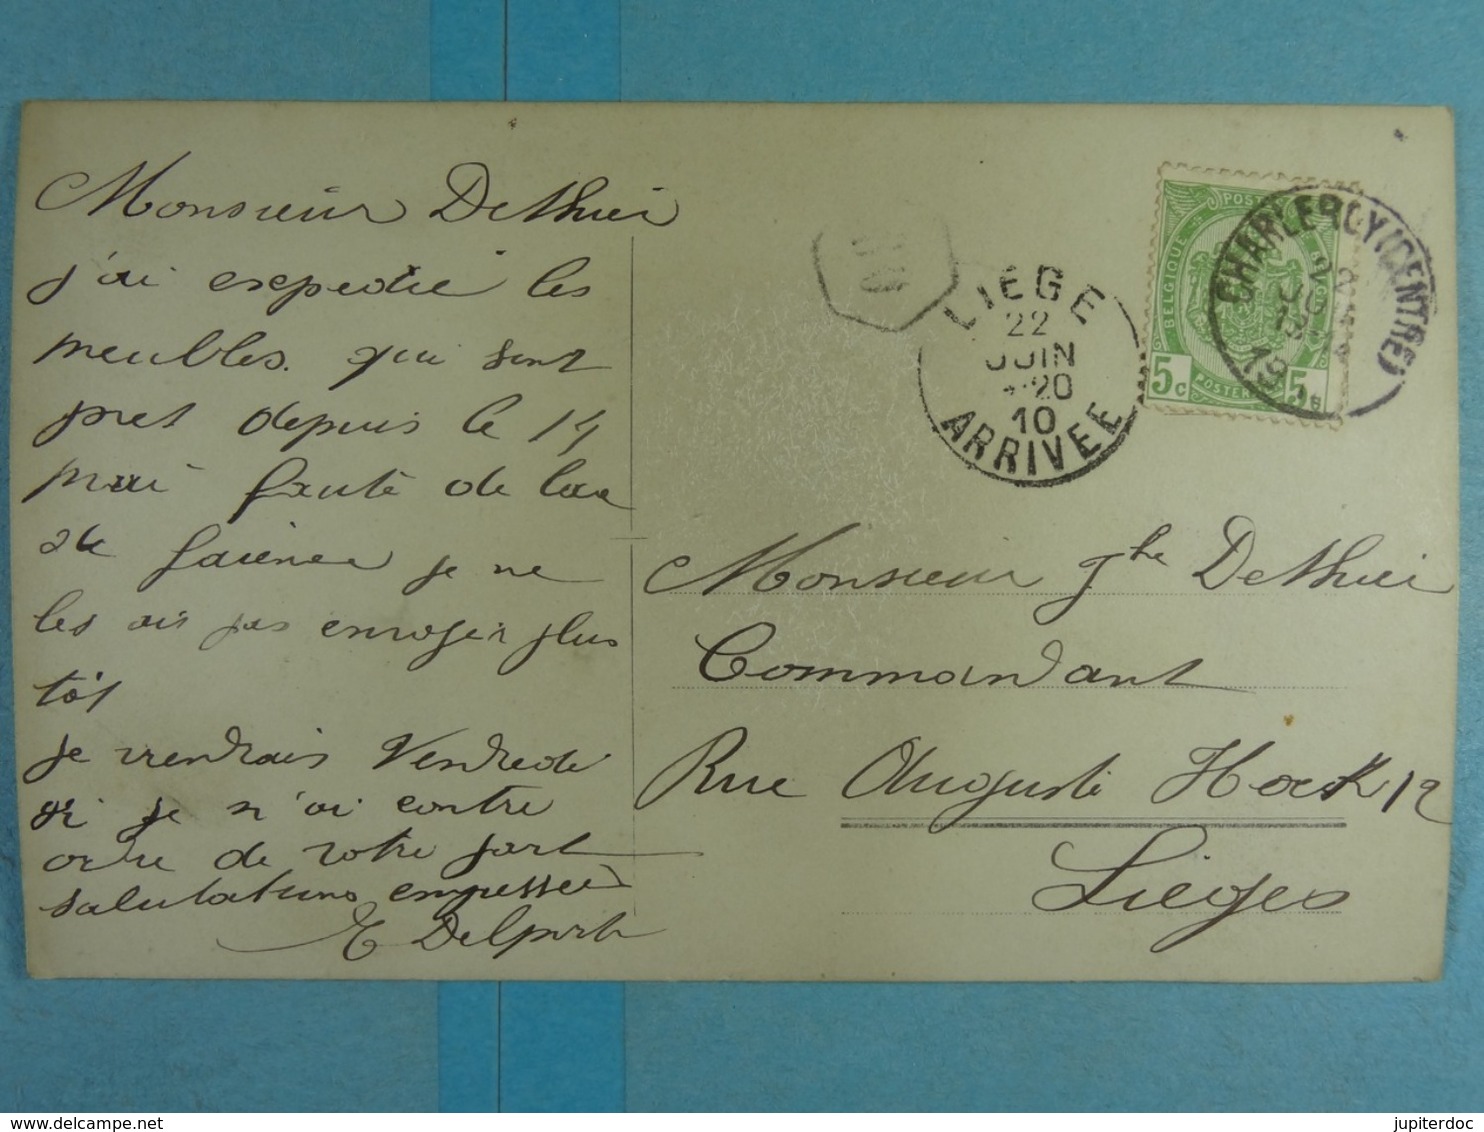 Monsieur Dethier
j'ai expedié les
meubles. qui sont
pret depuis le 14
mai fauté de
faience je ne
les ais pas envoyer plus
tôt
je viendrais Vendredi
si je n'ai contre
ordre de votre part
salutations empressées
E Delporte
LIEGE
22
JUIN
10
ARRIVEE
CHARLEROY (CENTRE)
POSTE
BELGIQUE
5c
5c
Monsieur Jhe Dethier
Commandant
Rue Auguste Hock 12
Lièges
delcampe.net
jupiterdoc